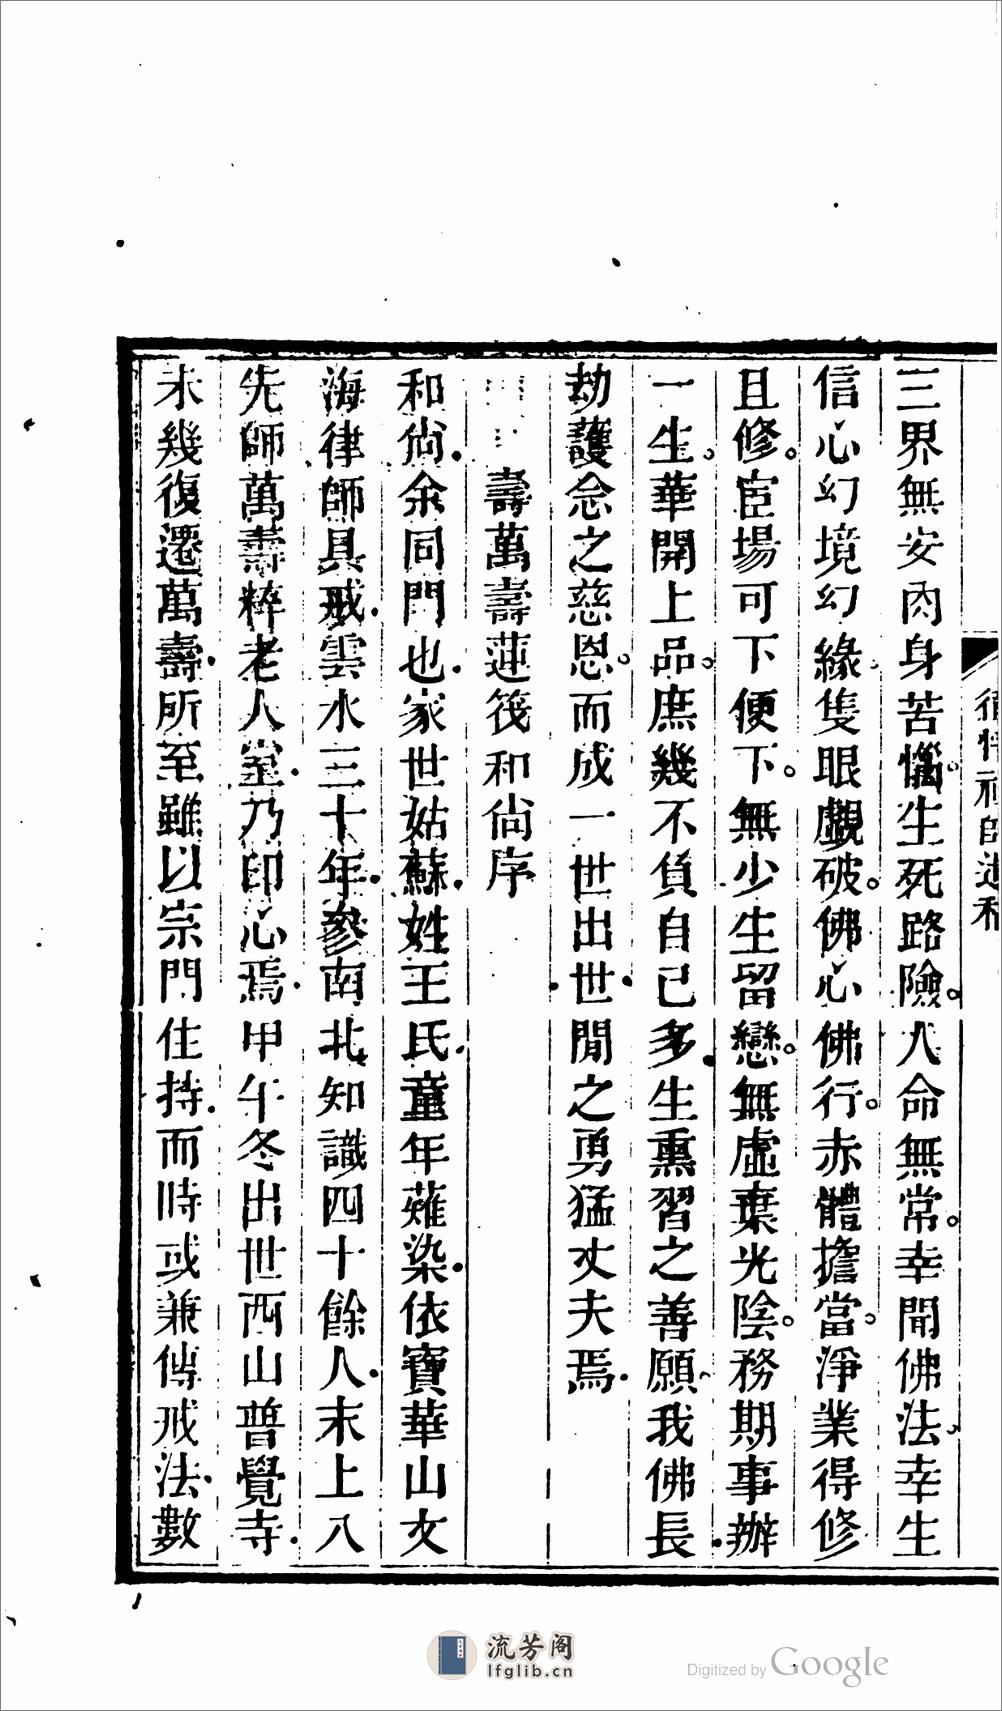 三界無安肉身苦惱生死路險人命無常幸聞佛法幸生
信心幻境幻緣隻眼覷破佛心佛行赤體擔當淨業得修
且修宦場可下便下無少生留戀無虛棄光陰務期事辦
一生華開上品庶幾不負自己多生熏習之善願我佛長
劫護念之慈恩而成一世出世間之勇猛丈夫焉
壽萬壽蓮筏和尚序
和尚余同門也家世姑蘇姓王氏童年薙染依寶華山文
海律師具戒雲水三十年參南北知識四十餘人末上入
先師萬壽粹老人室乃印心焉甲午冬出世西山普覺寺
未幾復遷萬壽所至雖以宗門住持而時或兼傳戒法數
流芳阁
lfglib.cn
Digitized by Google